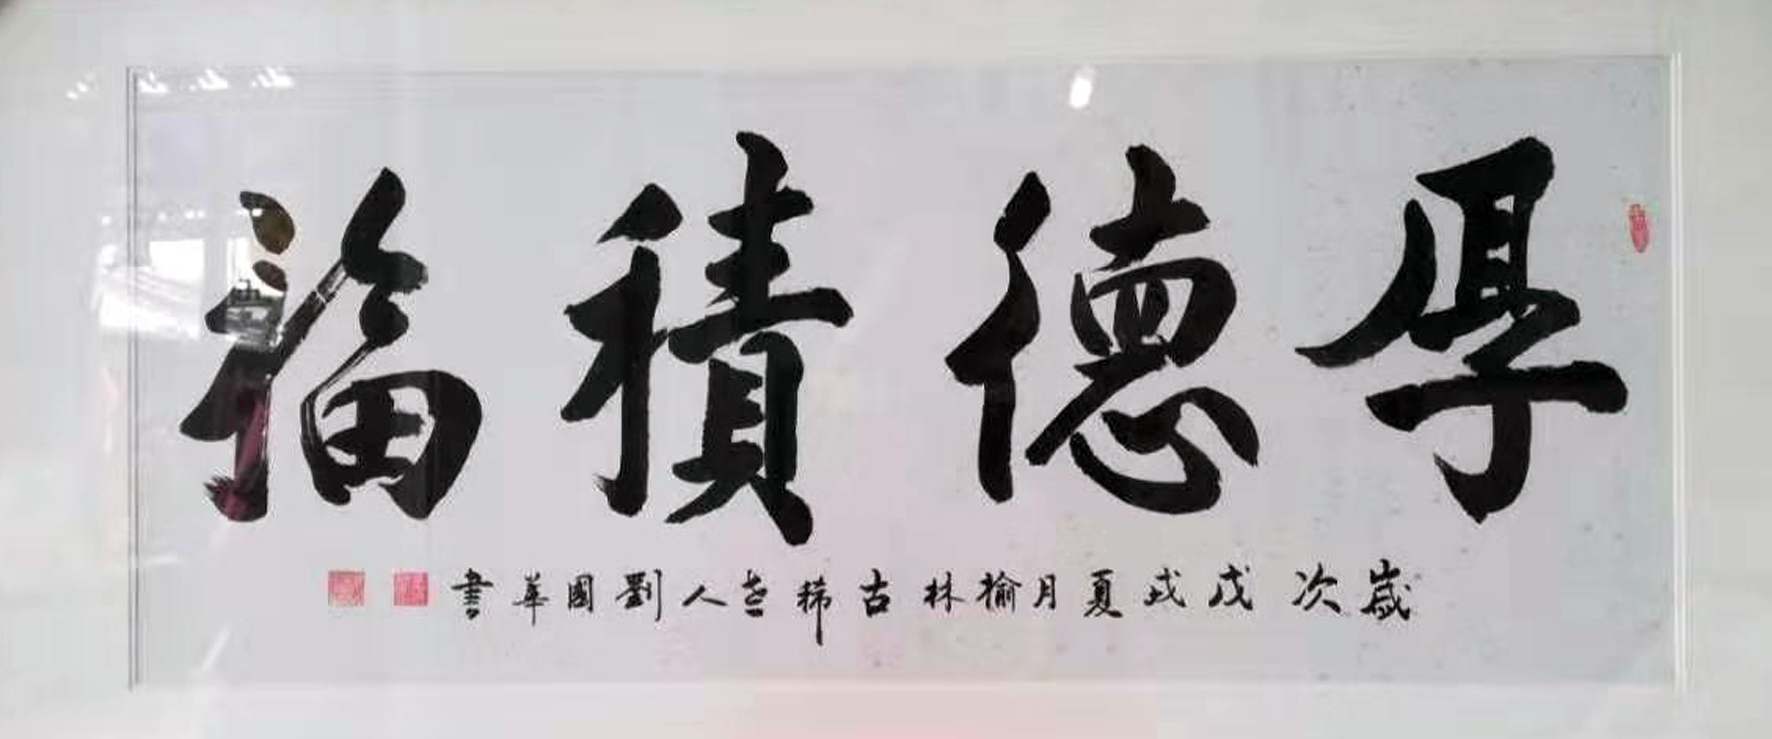 厚德積福
歲次戊戌夏月榆林古稀老人劉國華書